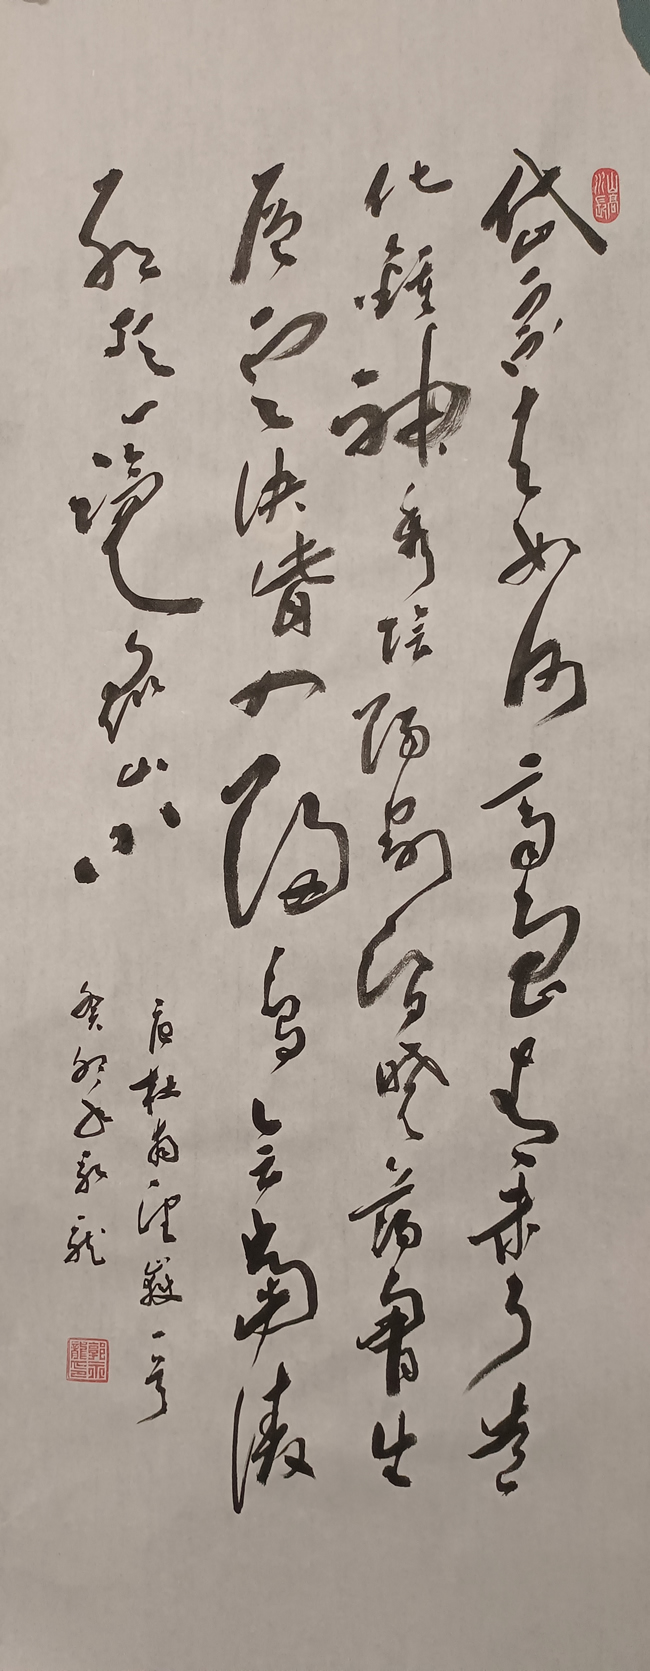 山高水長
岱宗夫如何齊魯青未了造
化鍾神秀陰陽割昏曉蕩胸生
層雲決眥入歸鳥會當凌
絕頂一覽眾山小
唐杜甫望嶽一首
癸卯年永龍
郭永龍印